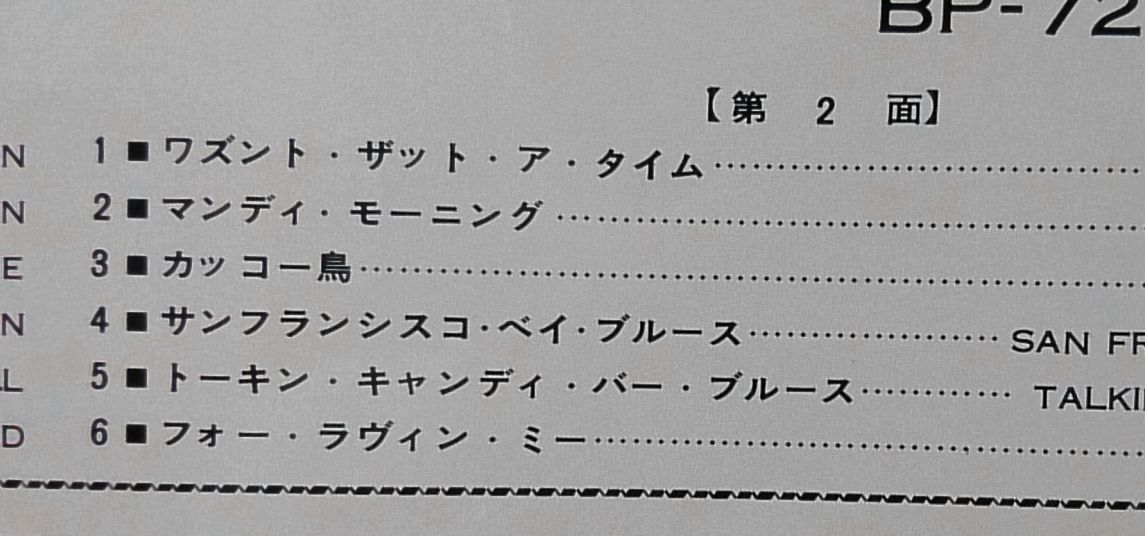 BP-72
【第 2 面】
N 1■ワズント・ザット・ア・タイム
N 2■マンディ・モーニング
E 3■カッコー鳥
N 4■サンフランシスコ・ベイ・ブルース SAN FR
L 5■トーキン・キャンディ・バー・ブルース TALKI
D 6■フォー・ラヴィン・ミー